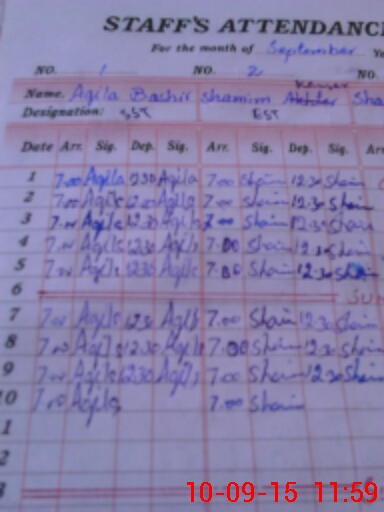 STAFF'S ATTENDANC
For the month of September Ye
NO. 1 NO. 2 NO.
Kauser
Name. Aqila Bashir Shamim Akhter Sha
Designation: SST EST
Date Arr. Sig. Dep. Sig. Arr. Sig. Dep. Sig. Arr
1 7.00 Aqila 12.30 Aqila 7.00 Sham 12.30 Sham
2 7.00 Aqila 12.30 Aqila 7.00 Sham 12.30 Sham
3 7.00 Aqila 12.30 Aqila 7.00 Sham 12.30 Sham
4 7.00 Aqila 12.30 Aqila 7.00 Sham 12.30 Sham
5 7.00 Aqila 12.30 Aqila 7.00 Sham 12.30 Sham
6 SU
7 7.00 Aqila 12.30 Aqila 7.00 Sham 12.30 Sham
8 7.00 Aqila 12.30 Aqila 7.00 Sham 12.30 Sham
9 7.00 Aqila 12.30 Aqila 7.00 Sham 12.30 Sham
10 7.00 Aqila 7.00 Sham
1
2
3
10-09-15 11:59